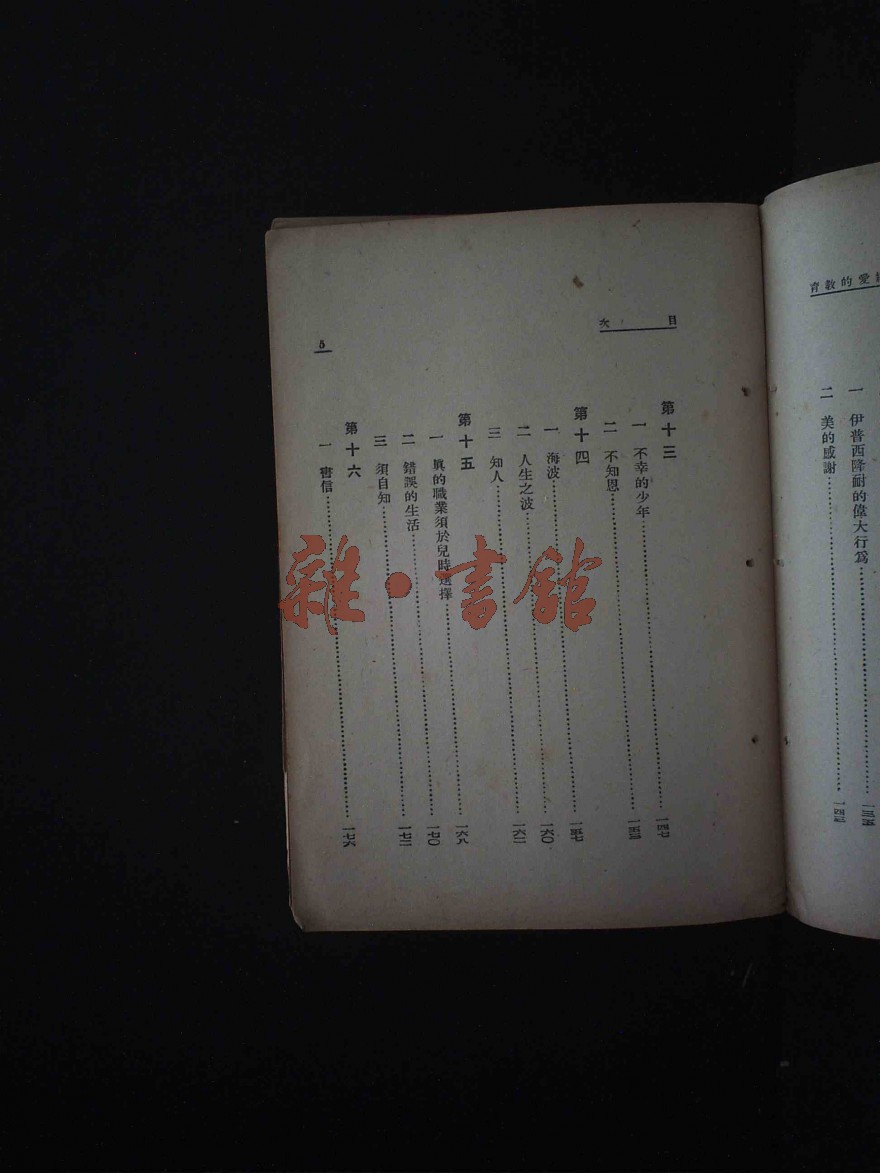 愛的教育
一 伊普西隆耐的偉大行爲……一三五
二 美的感謝……一四三
目次
第十三
一 不幸的少年……一四七
二 不知恩……一五三
第十四
一 海波……一五七
二 人生之波……一六〇
三 知人……一六二
第十五
一 眞的職業須於兒時選擇……一六八
二 錯誤的生活……一七〇
三 須自知……一七三
第十六
一 書信……一七六
5
雜·書館